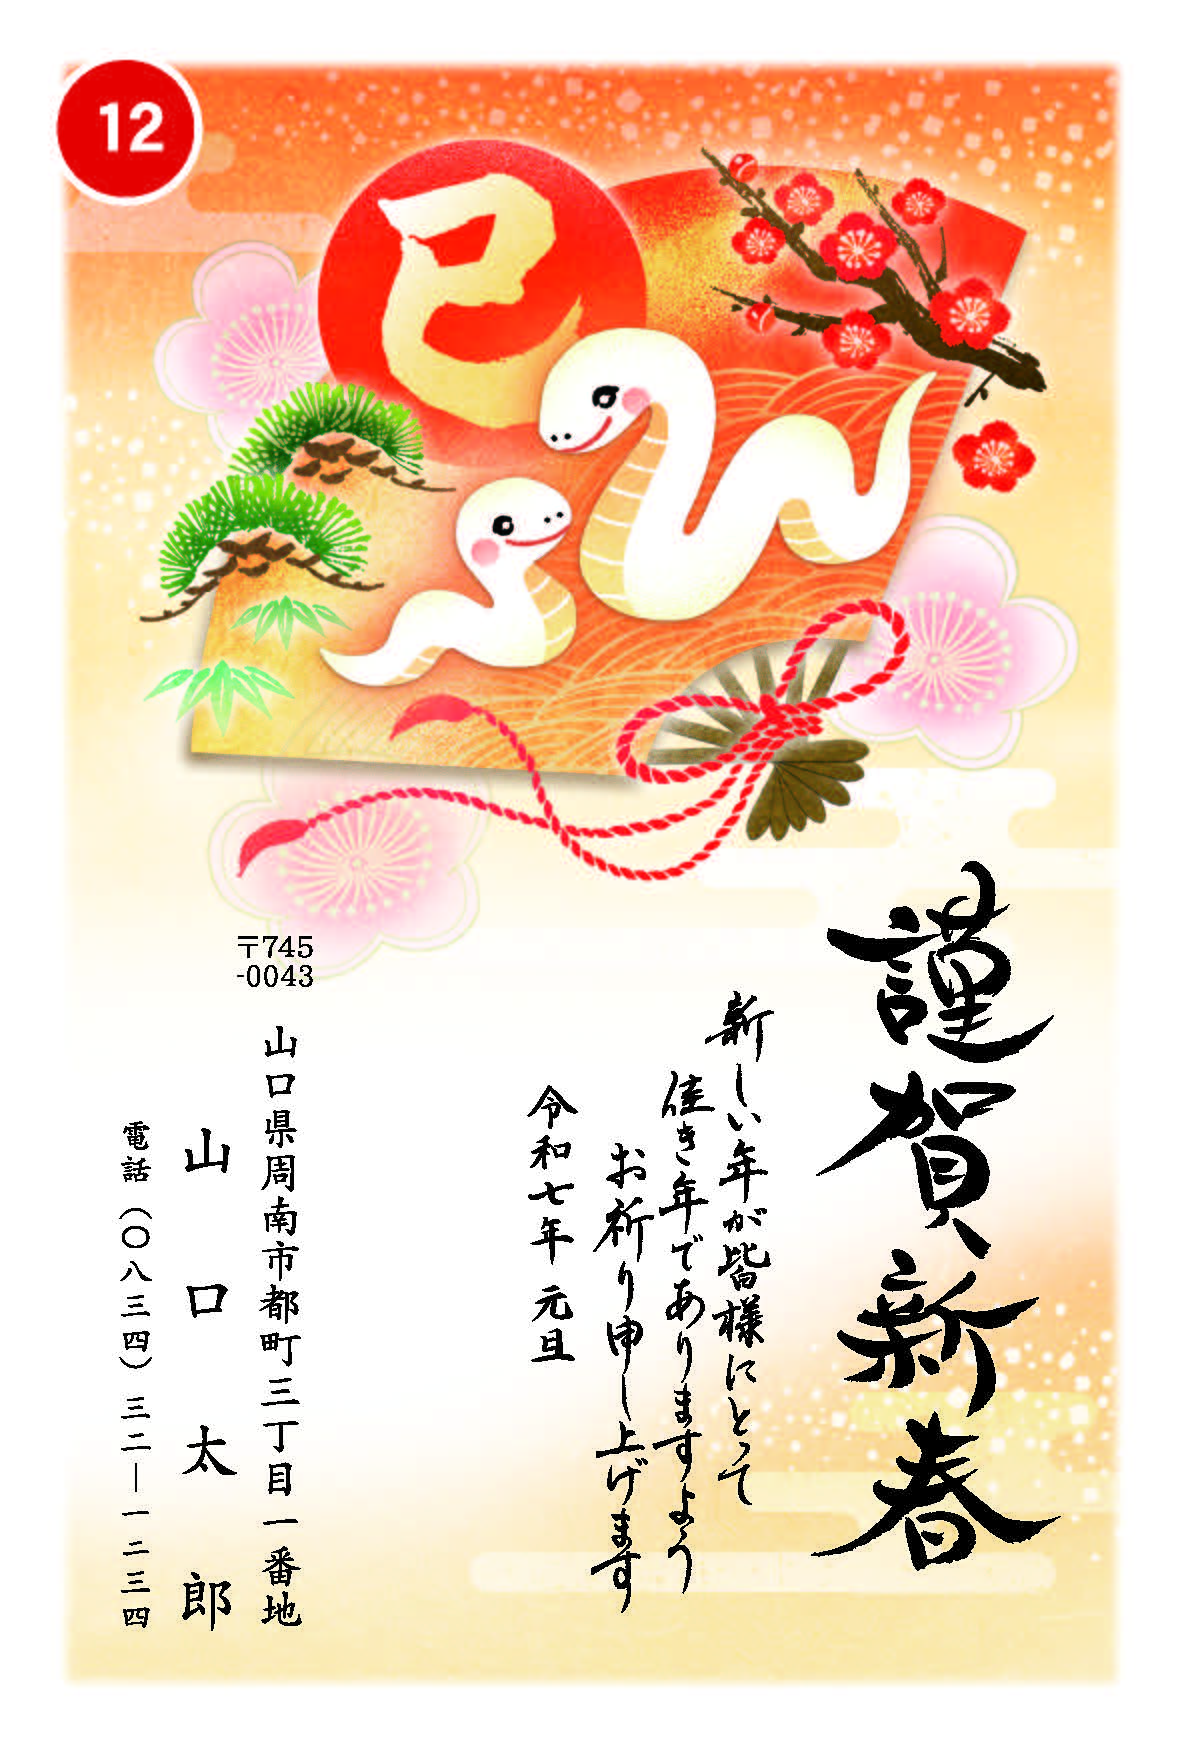 12
巳
謹賀新春
新しい年が皆様にとって
佳き年でありますよう
お祈り申し上げます
令和七年 元旦
〒745
-0043
山口県周南市都町三丁目一番地
山口太郎
電話(〇八三四)三二―一二三四